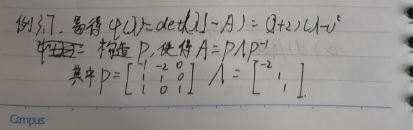 例3.7. 易得 φ(λ)=det(λI-A)=(λ+2)(λ-1)²
构造 P, 使得 A=PΛP⁻¹
其中 P=[-1 -2 0; 1 1 0; 1 0 1] Λ=[-2 1 1].
Campus